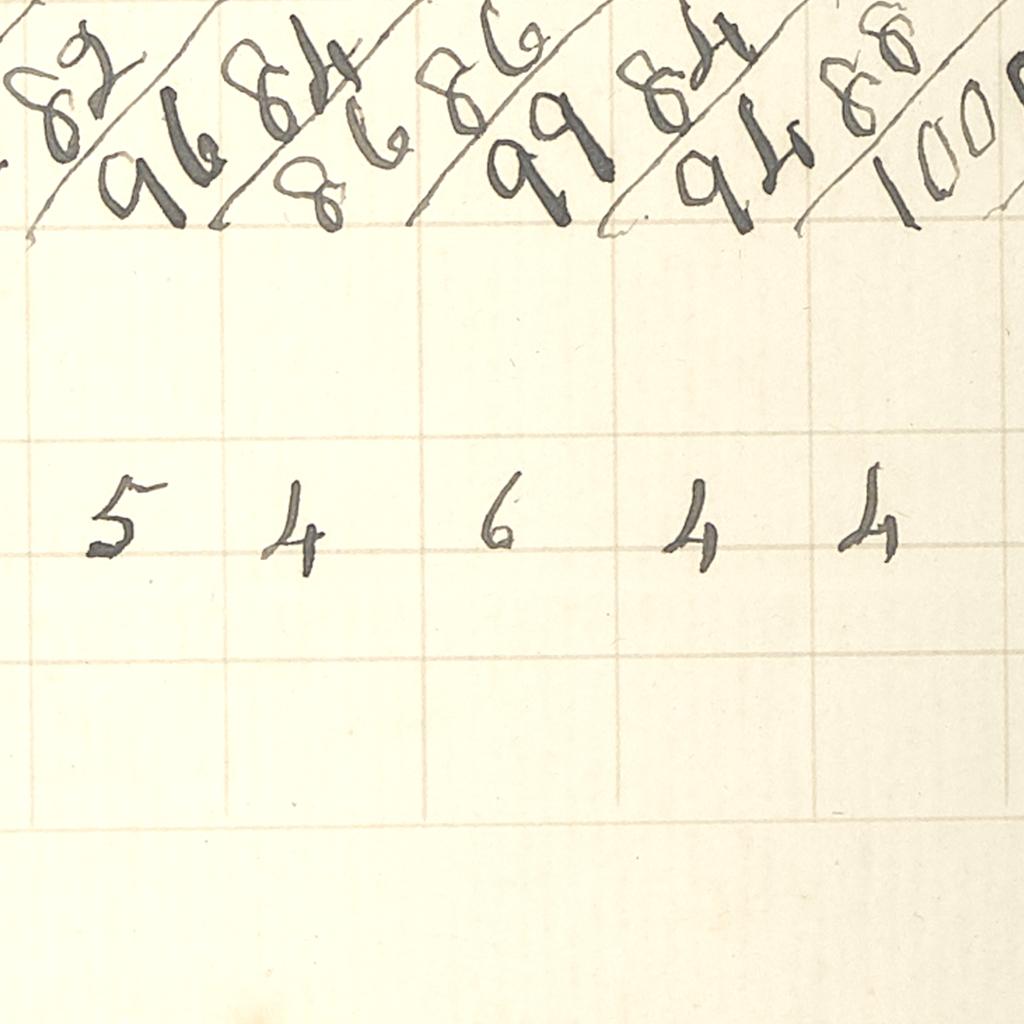 82/96 84/86 86/99 84/94 88/100
5 4 6 4 4